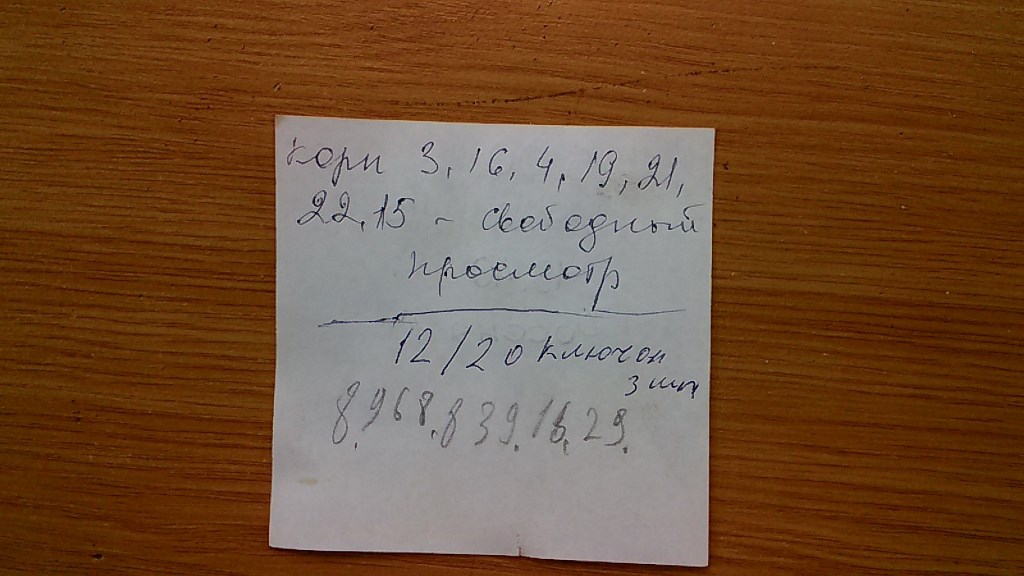 корп 3, 16, 4, 19, 21,
22, 15 - свободный
просмотр
12/20 ключей
3 шт
8.968.839.16.29.